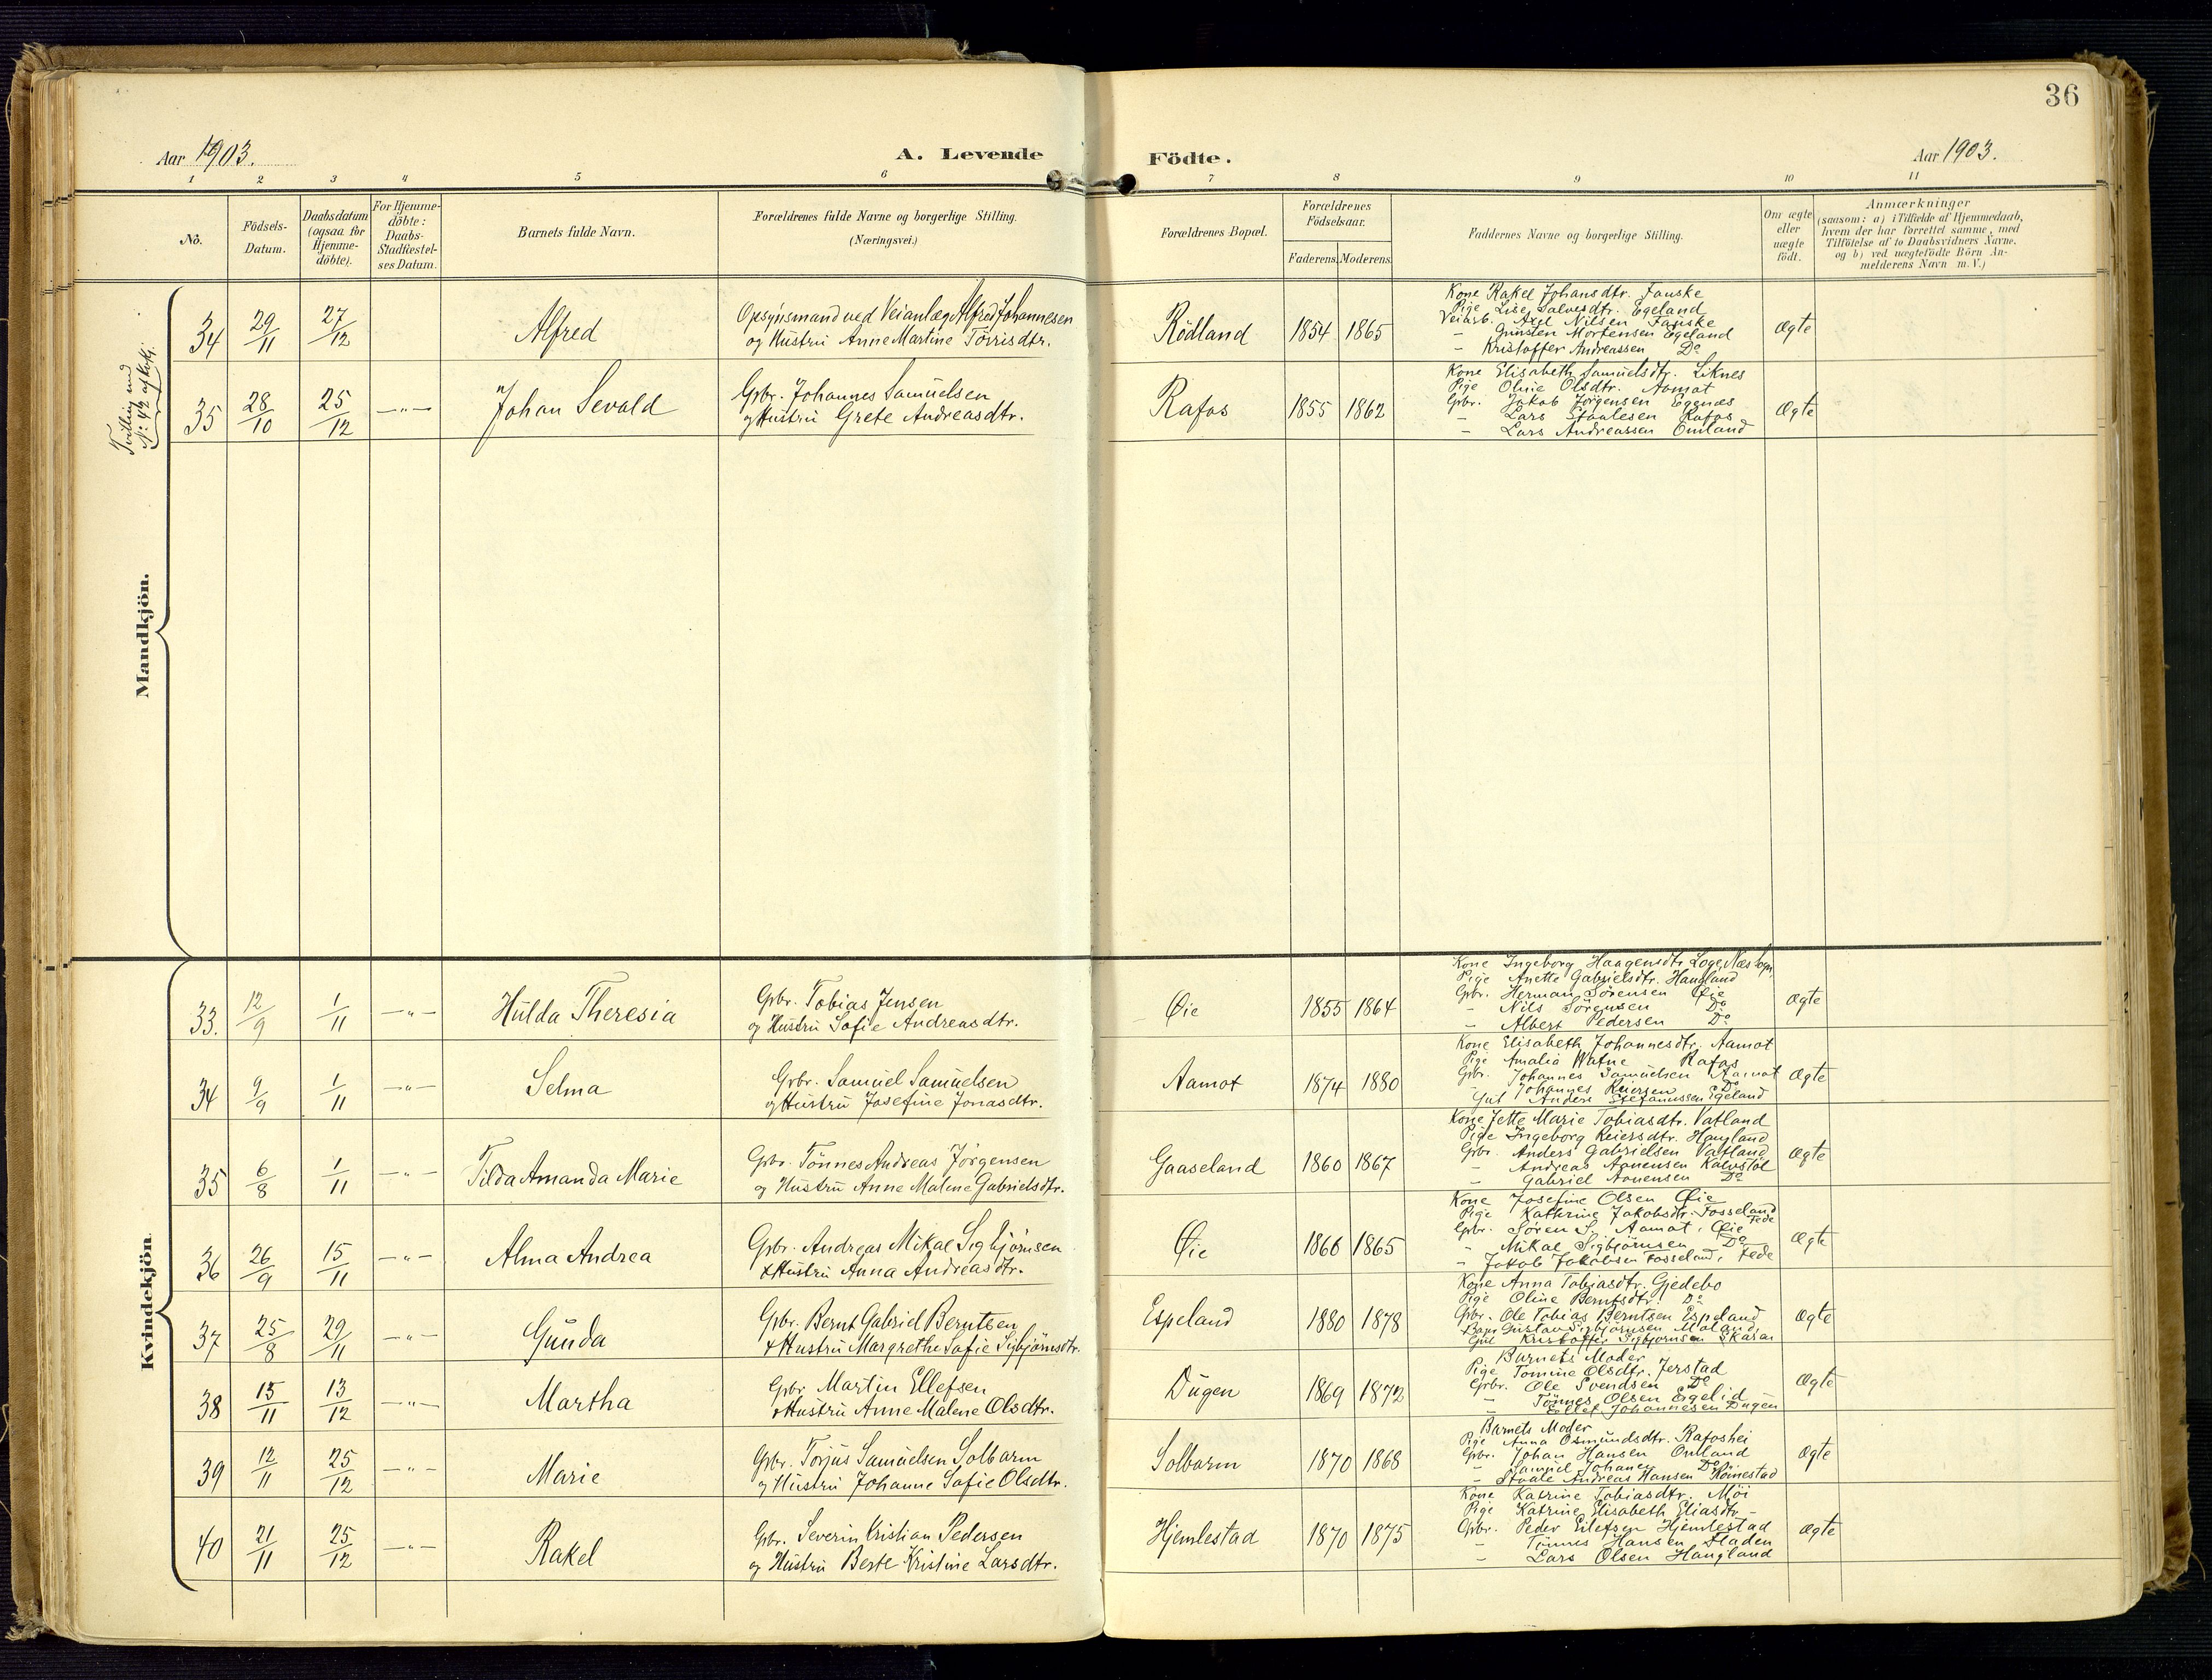 36
Aar 1903.
A. Levende Födte.
Aar 1903.
1 2 3 4 5 6 7 8 9 10 11
No.
Födsels-Datum.
Daabsdatum (ogsaa for Hjemme-döbte).
For Hjemme-döbte: Daabs-Stadfæstel-ses Datum.
Barnets fulde Navn.
Forældrenes fulde Navne og borgerlige Stilling.
(Næringsvei.)
Forældrenes Bopæl.
Forældrenes Födselsaar.
Faderens. Moderens.
Faddernes Navne og borgerlige Stilling.
Om ægte eller uægte födt.
Anmærkninger
(saasom: a) i Tilfælde af Hjemmedaab, hvem der har forrettet samme, med Tilföielse af to Daabsvidners Navne, og b) ved uægtefödte Börn An-melderens Navn m. V.)
Mandkjön.
34 29/11 27/12 Alfred
Opsynsmand ved Veianlæg Alfred Johannesen
og Hustru Anne Martine Törrisdtr.
Rödland 1854 1865
Kone Rakel Johansdtr. Fauske
Pige Lise Salvesdtr. Egeland
Veiarb. Axel Nilsen Fauske
- Gunsten Mortensen Egeland
- Kristoffer Andreassen Do
Ægte
Tvilling med
35 28/10 25/12 —"— Johan Sevald
Gbr. Johannes Samuelsen
og Hustru Grete Andreasdtr.
Rafos 1855 1862
Kone Elisabeth Samuelsdtr. Liknes
Pige Oline Olsdtr. Aamot
Gbr. Jakob Jørgensen Egenæs
- Lars Staalesen Rafos
- Lars Andreassen Omland
Ægte
Kvindekjön.
33. 12/9 1/11 —"— Hulda Theresia
Gbr. Tobias Jensen
og Hustru Sofie Andreasdtr.
Øie 1855 1864
Kone Ingeborg Haagensdtr. Loge, Næs Sogn
Pige Anette Gabrielsdtr. Haugland
Gbr. Herman Sörensen Øie
- Nils Sörensen Do
- Albert Pedersen Do
Ægte
34 9/9 1/11 —"— Selma
Gbr. Samuel Samuelsen
og Hustru Josefine Jonasdtr.
Aamot 1874 1880
Kone Elisabeth Johannesdtr. Aamot
Pige Amalia Watne Rafos
Gbr. Johannes Samuelsen Aamot
- Johannes Reiersen Do
Gut Anders Stefanussen Egeland
Ægte
35 6/8 1/11 —"— Tilda Amanda Marie
Gbr. Tönnes Andreas Jörgensen
og Hustru Anne Malene Gabrielsdtr.
Gaaseland 1860 1867
Kone Jette Marie Tobiasdtr. Vatland
Pige Ingeborg Reiersdtr. Haugland
Gbr. Anders Gabrielsen Vatland
- Andreas Aanensen Kalvstöl
- Gabriel Aanensen Do
Ægte
36 26/9 15/11 —"— Alma Andrea
Gbr. Andreas Mikal Sigbjörnsen
& Hustru Anna Andreasdtr.
Øie 1866 1865
Kone Josefine Olsen Øie
Pige Kathrine Jakobsdtr. Fosseland Fede
Gbr. Sören S. Aamot, Øie
- Mikal Sigbjörnsen Do
- Jakob Jakobsen Fosseland, Fede
Ægte
37 25/8 29/11 —"— Gunda
Gbr. Bernt Gabriel Berntsen
& Hustru Margrethe Sofie Sigbjörnsdtr.
Espeland 1880 1878
Kone Anna Tobiasdtr. Gjedebo
Pige Oline Berntsdtr. Do
Gbr. Ole Tobias Berntsen Espeland
Gustav Sigbjörnsen Moland
Gut Kristoffer Sigbjörnsen Skaran
Ægte
38 15/11 13/12 —"— Martha
Gbr. Martin Ellefsen
& Hustru Anne Malene Olsdtr.
Dugen 1869 1872
Barnets Moder
Pige Tomine Olsdtr. Jerstad
Gbr. Ole Svendsen Do
- Tönnes Olsen Eigelid
- Ellef Johannesen Dugen
Ægte
39 12/11 25/12 —"— Marie
Gbr. Torjus Samuelsen Solbarm
og Hustru Johanne Sofie Olsdtr.
Solbarm 1870 1868
Barnets Moder
Pige Anna Osmundsdtr. Rafoshei
Gbr. Johan Hansen Omland
- Samuel Johansen Do
- Staale Andreas Hansen Röinestad
Ægte
40 21/11 25/12 —"— Rakel
Gbr. Severin Kristian Pedersen
og Hustru Berte Kristine Larsdtr.
Hjemlestad 1870 1875
Kone Katrine Tobiasdtr. Möi
Pige Katrine Elisabeth Eliasdtr. -
Gbr. Peder Eilefsen Hjemlestad
- Tönnes Hansen Fladen
- Lars Olsen Haugland
Ægte